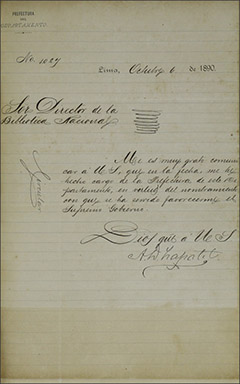 PREFECTURA
DEL
DEPARTAMENTO
No. 1027
Lima, Octubre 6 de 1890.
Sor Director de la
Biblioteca Nacional
Me es muy grato comuni
car á U S, que en la fecha, me he
hecho cargo de la Prefectura de este De
partamento, en virtud del nombramiento
con que se ha servido favorecerme el
Supremo Gobierno.
Dios gue á U S